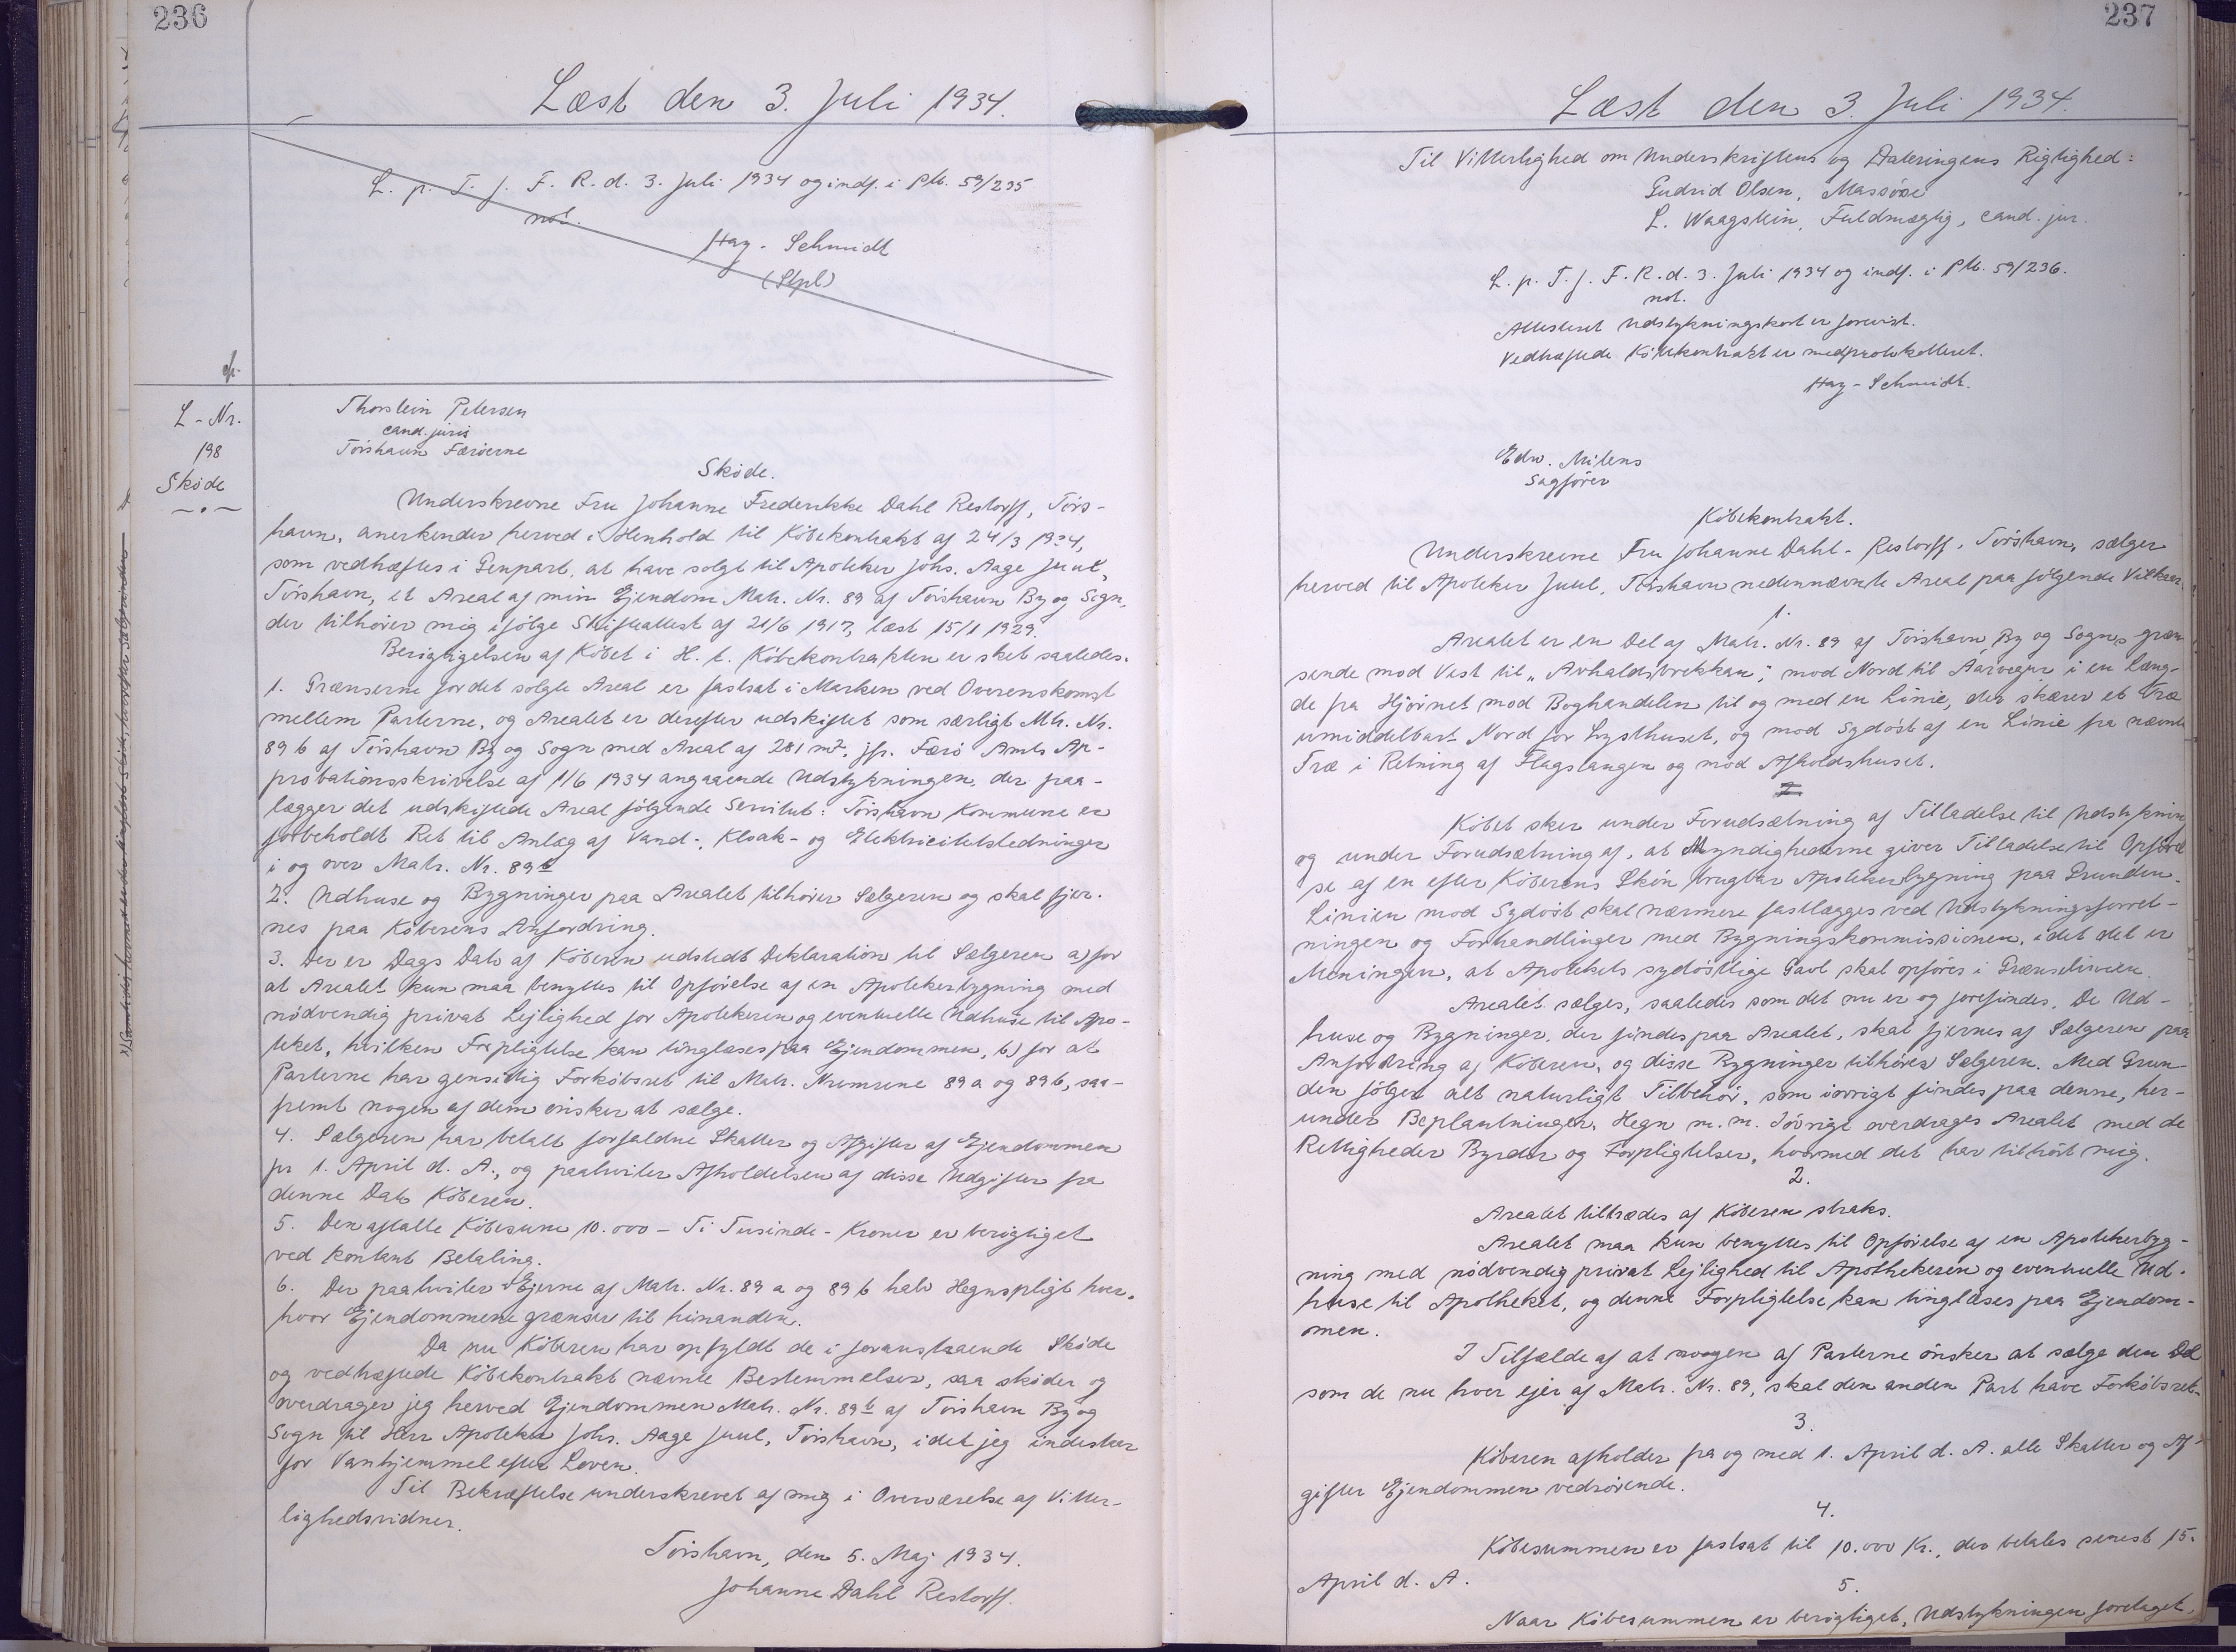 236
Læst den 3. Juli 1934.
L. p. T. f. F. R. d. 3. Juli 1934 og indf. i Ptk. 59/235
not.
Hay-Schmidt
(Stpl)
L-Nr.
198
Skøde
Thorstein Petersen
cand. juris
Tórshavn Færöerne
Sköde.
Underskrevne Fru Johanne Frederikke Dahl Restorff, Tórs-
havn, anerkender herved i Henhold til Köbekontrakt af 24/3 1934,
som vedhæftes i Genpart, at have solgt til Apoteker Johs. Aage Juul,
Tórshavn, et Areal af min Ejendom Matr. Nr. 89 af Tórshavn By og Sogn,
der tilhörer mig ifölge Skifteattest af 21/6 1917, læst 15/1 1929.
Berigtigelsen af Köbet i H. t. Köbekontrakten er sket saaledes.
1. Grænserne for det solgte Areal er fastsat i Marken ved Overenskomst
mellem Parterne, og Arealet er derefter udskiftet som særligt Mtr. Nr.
89 b af Tórshavn By og Sogn med Areal af 281 m², jfr. Færö Amts Ap-
probationsskrivelse af 1/6 1934 angaaende Udstykningen, der paa-
lægger det udskiftede Areal fölgende Servitut: Tórshavn Kommune er
forbeholdt Ret til Anlæg af Vand-, Kloak- og Elektricitetsledninger
i og over Matr. Nr. 89 b
2. Udhuse og Bygninger paa Arealet tilhörer Sælgeren og skal fjer-
nes paa Köberens Anfordring.
3. Der er Dags Dato af Köberen udstedt Deklaration til Sælgeren a) for
at Arealet kun maa benyttes til Opförelse af en Apotekerbygning med
nödvendig privat Lejlighed for Apotekeren og eventuelle Udhuse til Apo-
teket, hvilken Forpligtelse kan tinglæses paa Ejendommen, b) for at
Parterne har gensidig Forköbsret til Matr. Numrene 89 a og 89 b, saa-
fremt nogen af dem önsker at sælge.
4. Sælgeren har betalt forfaldne Skatter og Afgifter af Ejendommen
pr 1. April d. A., og paahviler Afholdelsen af disse Udgifter fra
denne Dato Köberen.
5. Den aftalte Köbesum 10.000 - Ti Tusinde - Kroner er berigtiget
ved kontant Betaling.
6. Der paahviler Ejerne af Matr. Nr. 89 a og 89 b halv Hegnspligt hver,
hvor Ejendommene grænser til hinanden.
Da nu Köberen har opfyldt de i foranstaaende Sköde
og vedhæftede Köbekontrakt nævnte Bestemmelser, saa sköder og
overdrager jeg herved Ejendommen Matr. Nr. 89 b af Tórshavn By og
Sogn til Herr Apoteker Johs. Aage Juul, Tórshavn, idet jeg indestaar
for Vanhjemmel efter Loven.
Til Bekræftelse underskrevet af mig i Overværelse af Vitter-
lighedsvidner.
Tórshavn, den 5. Maj 1934.
Johanne Dahl Restorff.
237
Læst den 3. Juli 1934.
Til Vitterlighed om Underskriftens og Dateringens Rigtighed:
Gudrid Olsen, Massöse
L. Waagstein, Fuldmægtig, cand. jur.
L. p. T. f. F. R. d. 3. Juli 1934 og indf. i Ptk. 59/236.
not.
Attesteret Udstykningskort er forevist.
Vedhæftede Köbekontrakt er medprotokolleret.
Hay-Schmidt.
Edw. Mitens
Sagförer
Köbekontrakt.
Underskrevne Fru Johanne Dahl-Restorff, Tórshavn, sælger
herved til Apoteker Juul, Tórshavn nedennævnte Areal paa fölgende Vilkaar.
1.
Arealet er en Del af Matr. Nr. 89 af Tórshavn By og Sogn, græn
sende mod Vest til "Avhaldsbrekkan", mod Nord til Áarvegur i en læng-
de fra Hjörnet mod Boghandelen til og med en Linie, der skærer et Træ
umiddelbart Nord for Lysthuset, og mod Sydöst af en Linie fra nævnte
Træ i Retning af Flagstangen og mod Afholdshuset.
2
Köbet sker under Forudsætning af Tilladelse til Udstykning
og under Forudsætning af, at Myndighederne giver Tilladelse til Opförel
se af en efter Köberens Skön brugbar Apotekerbygning paa Grunden.
Linien mod Sydöst skal nærmere fastlægges ved Udstykningsforret-
ningen og Forhandlinger med Bygningskommissionen, idet det er
Meningen, at Apotekets sydöstlige Gavl skal opföres i Grænselinien.
Arealet sælges, saaledes som det nu er og forefindes. De Ud-
huse og Bygninger, der findes paa Arealet, skal fjernes af Sælgeren paa
Anfordring af Köberen, og disse Bygninger tilhörer Sælgeren. Med Grun-
den fölger alt naturligt Tilbehör, som iövrigt findes paa denne, her-
under Beplantninger, Hegn m. m. Iövrigt overdrages Arealet med de
Rettigheder Byrder og Forpligtelser, hvormed det har tilhört mig.
2.
Arealet tiltrædes af Köberen straks.
Arealet maa kun benyttes til Opförelse af en Apotekerbyg-
ning med nödvendig privat Lejlighed til Apothekeren og eventuelle Ud-
huse til Apotheket, og denne Forpligtelse kan tinglæses paa Ejendom-
men.
I Tilfælde af at nogen af Parterne önsker at sælge den Del
som de nu hver ejer af Matr. Nr. 89, skal den anden Part have Forköbsret.
3.
Köberen afholder fra og med 1. April d. A. alle Skatter og Af-
gifter Ejendommen vedrörende.
4.
Köbesummen er fastsat til 10.000 Kr., der betales senest 15.
April d. A.
5.
Naar Köbesummen er berigtiget, Udstykningen foretaget,